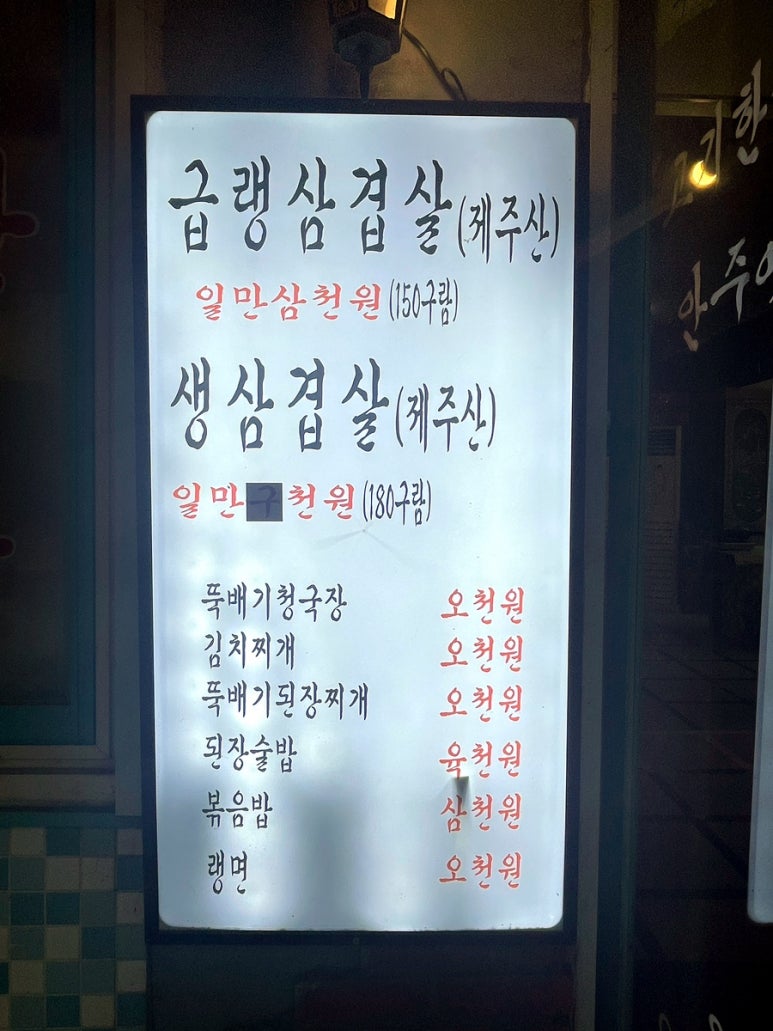 급랭삼겹살(제주산)
일만삼천원(150구람)
생삼겹살(제주산)
일만구천원(180구람)
뚝배기청국장 오천원
김치찌개 오천원
뚝배기된장찌개 오천원
된장술밥 육천원
볶음밥 삼천원
랭면 오천원